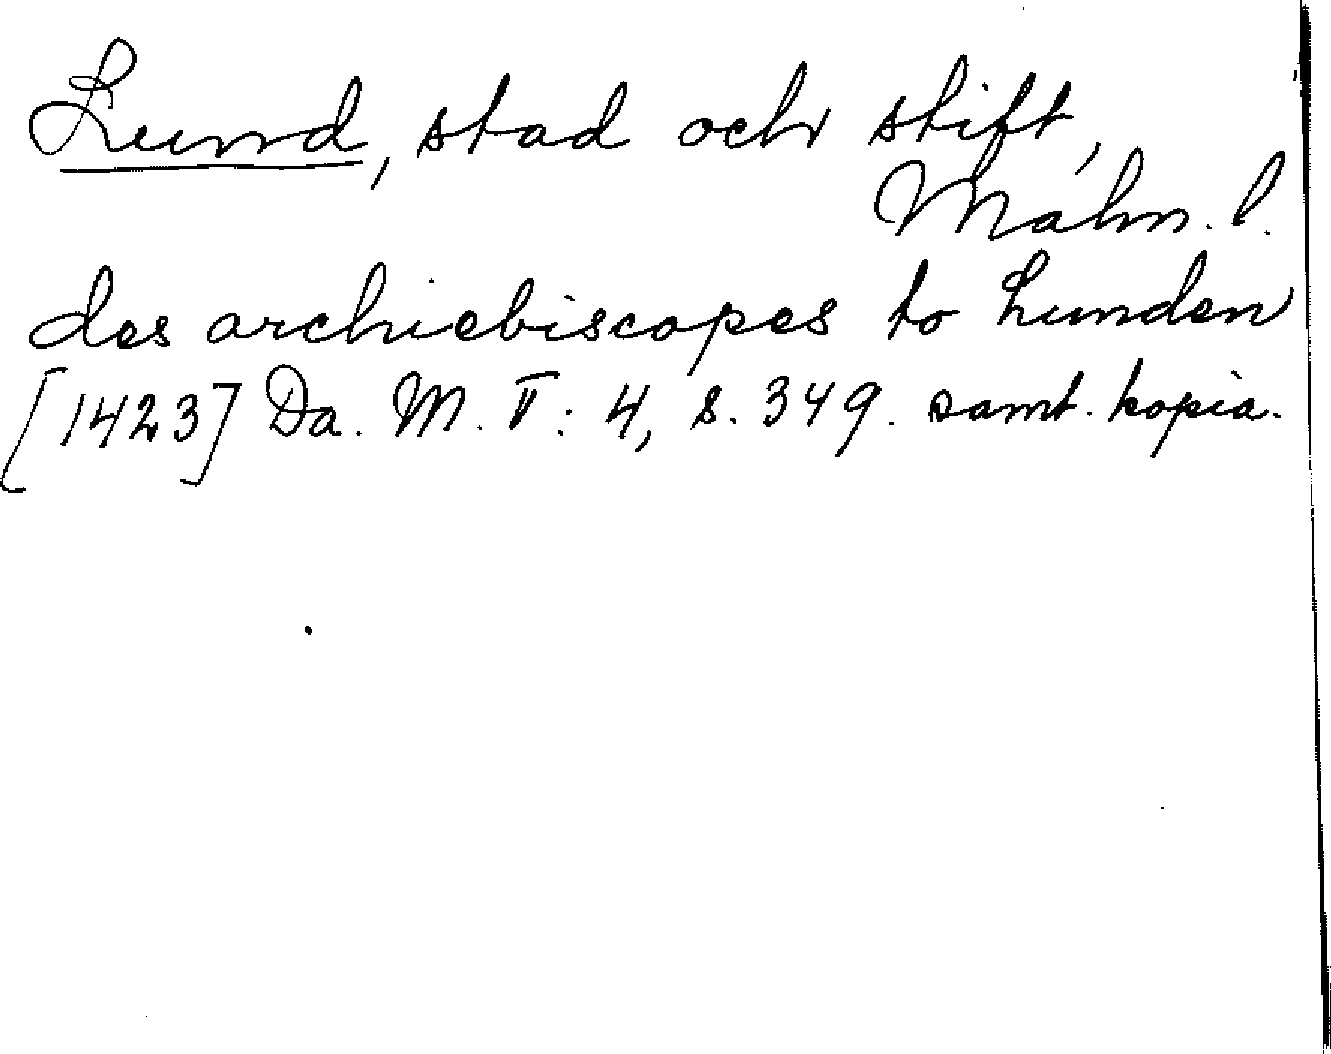 Lund, stad och stift,
Malm. l.
des archiebiscopes to Lunden
[1423] Da. M. V: 4, s. 349. samt. kopia.